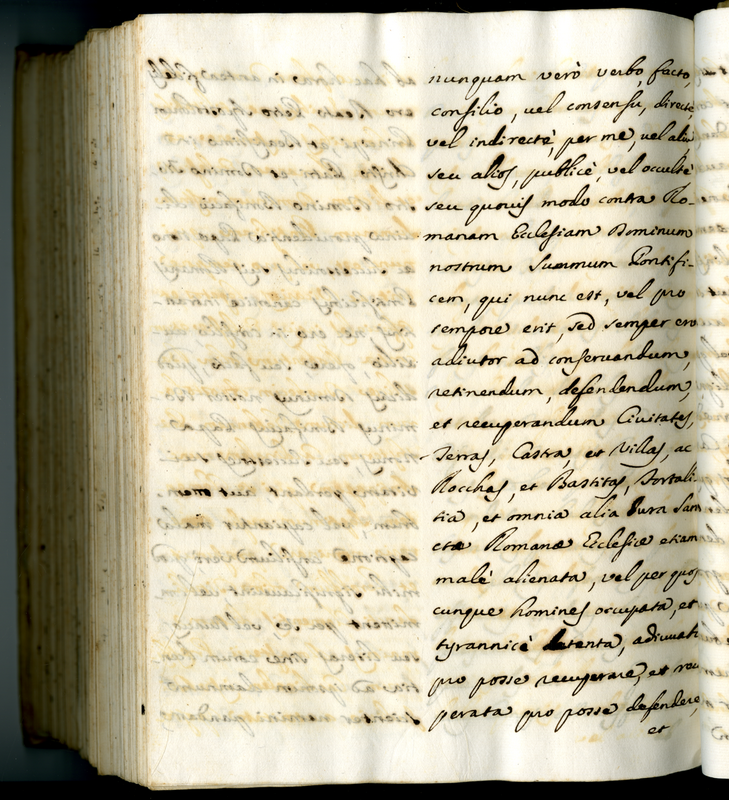 nunquam verò verbo, facto,
consilio, vel consensu, directè,
vel indirectè, per me, vel aliū
seu alios, publicè, vel occultè
seu quouis modo contra Ro-
manam Ecclesiam Dominum
nostrum Summum Pontifi-
cem, qui nunc est, vel pro
tempore erit, sed semper ero
adiutor ad conseruandum,
retinendum, defendendum,
et recuperandum Ciuitates,
Terras, Castra, et Villas, ac
Rocchas, et Bastitas, Fortali-
tia, et omnia alia Iura San
ctæ Romanæ Ecclesiæ etiam
malè alienata, vel per quos
cunque homines occupata, et
tyrannicè detenta,
pro posse recuperare, et recu
perata pro posse defendere,
et